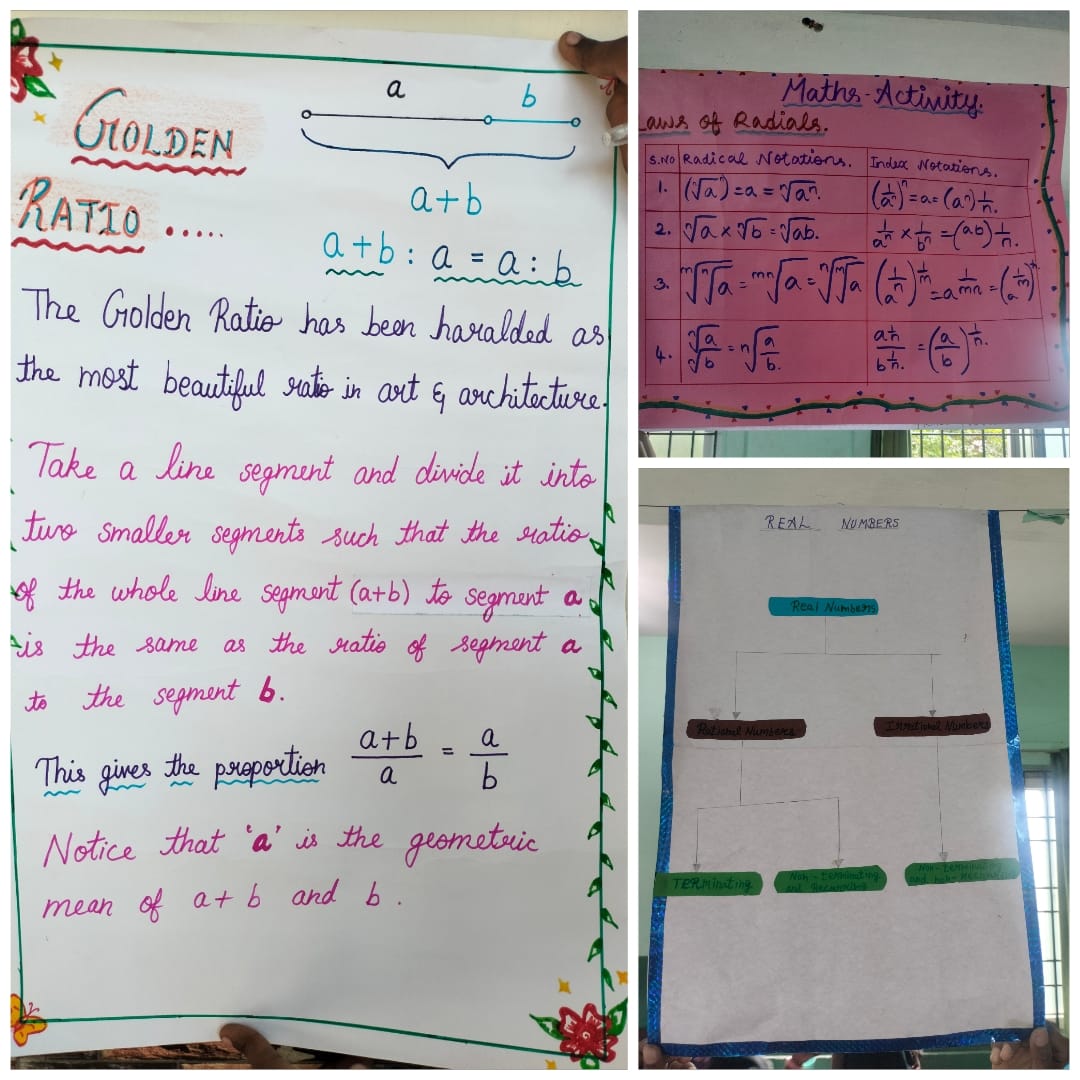 GOLDEN
RATIO .....
a b
a+b
a+b : a = a : b
The Golden Ratio has been haralded as
the most beautiful ratio in art & architecture.
Take a line segment and divide it into
two smaller segments such that the ratio
of the whole line segment (a+b) to segment a
is the same as the ratio of segment a
to the segment b.
This gives the proportion a+b/a = a/b
Notice that 'a' is the geometric
mean of a+b and b.
Maths-Activity.
Laws of Radials.
S.No Radical Notations. Index Notations.
1. (ⁿ√a)ⁿ = a = ⁿ√aⁿ.
2. ⁿ√a × ⁿ√b = ⁿ√ab. a^1/n × b^1/n = (ab)^1/n.
3. ᵐ√ⁿ√a = ᵐⁿ√a = ⁿ√ᵐ√a
4. ⁿ√a/ⁿ√b = ⁿ√a/b. a^1/n / b^1/n. = (a/b)^1/n.
REAL NUMBERS
Real Numbers
Rational Numbers Irrational Numbers
TERminating Non-terminating Non-terminating
and Recurring and non-Recurring